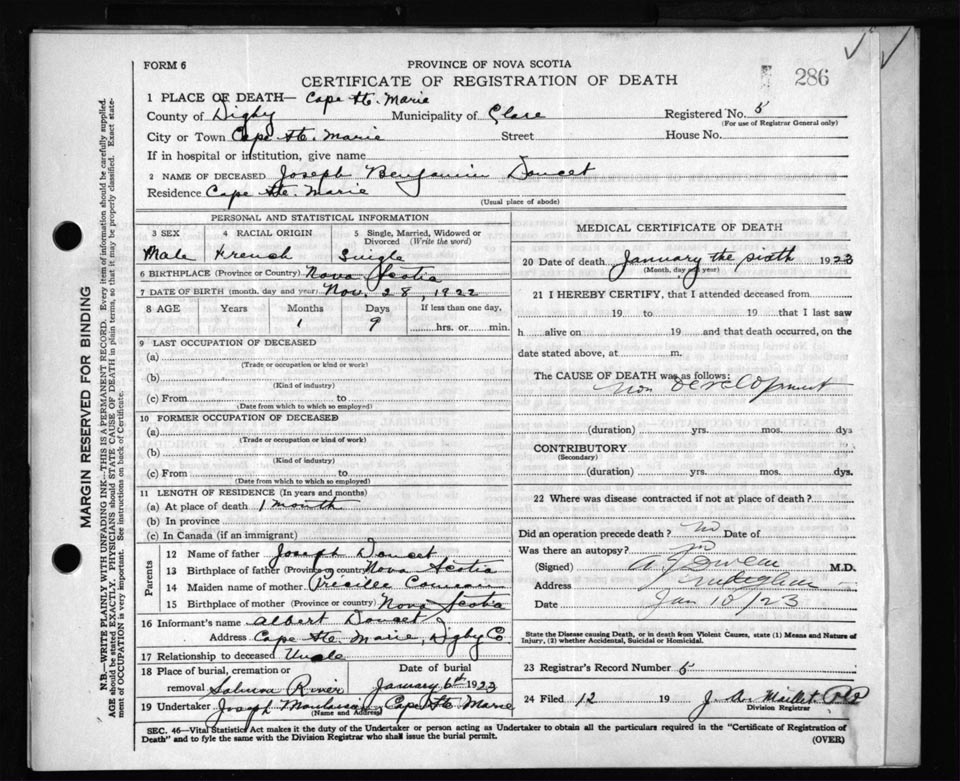 FORM 6
PROVINCE OF NOVA SCOTIA
CERTIFICATE OF REGISTRATION OF DEATH
286
1 PLACE OF DEATH— Cape Ste. Marie
County of Digby Municipality of Clare Registered No. 5
(For use of Registrar General only)
City or Town Cape Ste. Marie Street House No.
If in hospital or institution, give name
2 NAME OF DECEASED Joseph Benjamin Doucet
Residence Cape Ste. Marie
(Usual place of abode)
MARGIN RESERVED FOR BINDING
N.B.—WRITE PLAINLY WITH UNFADING INK—THIS IS A PERMANENT RECORD. Every item of information should be carefully supplied.
AGE should be stated EXACTLY. PHYSICIANS should STATE CAUSE OF DEATH in plain terms, so that it may be properly classified. Exact state-
ment of OCCUPATION is very important. See instructions on back of Certificate.
PERSONAL AND STATISTICAL INFORMATION
3 SEX 4 RACIAL ORIGIN 5 Single, Married, Widowed or
Divorced (Write the word)
Male French Single
6 BIRTHPLACE (Province or Country) Nova Scotia
7 DATE OF BIRTH (month, day and year) Nov. 28, 1922
8 AGE Years Months Days If less than one day,
1 9 hrs. or min.
9 LAST OCCUPATION OF DECEASED
(a)
(Trade or occupation or kind or work)
(b)
(Kind of industry)
(c) From to
(Date from which to which so employed)
10 FORMER OCCUPATION OF DECEASED
(a)
(Trade or occupation or kind of work)
(b)
(Kind of industry)
(c) From to
(Date from which to which so employed)
11 LENGTH OF RESIDENCE (In years and months)
(a) At place of death 1 month
(b) In province
(c) In Canada (if an immigrant)
Parents
12 Name of father Joseph Doucet
13 Birthplace of father (Province or country) Nova Scotia
14 Maiden name of mother Pricille Comeau
15 Birthplace of mother (Province or country) Nova Scotia
16 Informant's name Albert Doucet
Address Cape Ste Marie, Digby Co
17 Relationship to deceased Uncle
18 Place of burial, cremation or Date of burial
removal Salmon River January 6th 1923
19 Undertaker Joseph Cape Ste Marie
(Name and Address)
MEDICAL CERTIFICATE OF DEATH
20 Date of death January the sixth 1923
(Month, day and year)
21 I HEREBY CERTIFY, that I attended deceased from
19 to 19 that I last saw
h alive on 19 and that death occurred, on the
date stated above, at m.
The CAUSE OF DEATH was as follows:
Non Development
(duration) yrs. mos. dys
CONTRIBUTORY
(Secondary)
(duration) yrs. mos. dys.
22 Where was disease contracted if not at place of death?
Did an operation precede death? no Date of
Was there an autopsy? no
(Signed) M.D.
Address
Date Jan 10/23
State the Disease causing Death, or in death from Violent Causes, state (1) Means and Nature of
Injury, (2) whether Accidental, Suicidal or Homicidal.
23 Registrar's Record Number 5
24 Filed 12 19 J. Maillet
Division Registrar
SEC. 46—Vital Statistics Act makes it the duty of the Undertaker or person acting as Undertaker to obtain all the particulars required in the "Certificate of Registration of
Death" and to fyle the same with the Division Registrar who shall issue the burial permit.
(OVER)